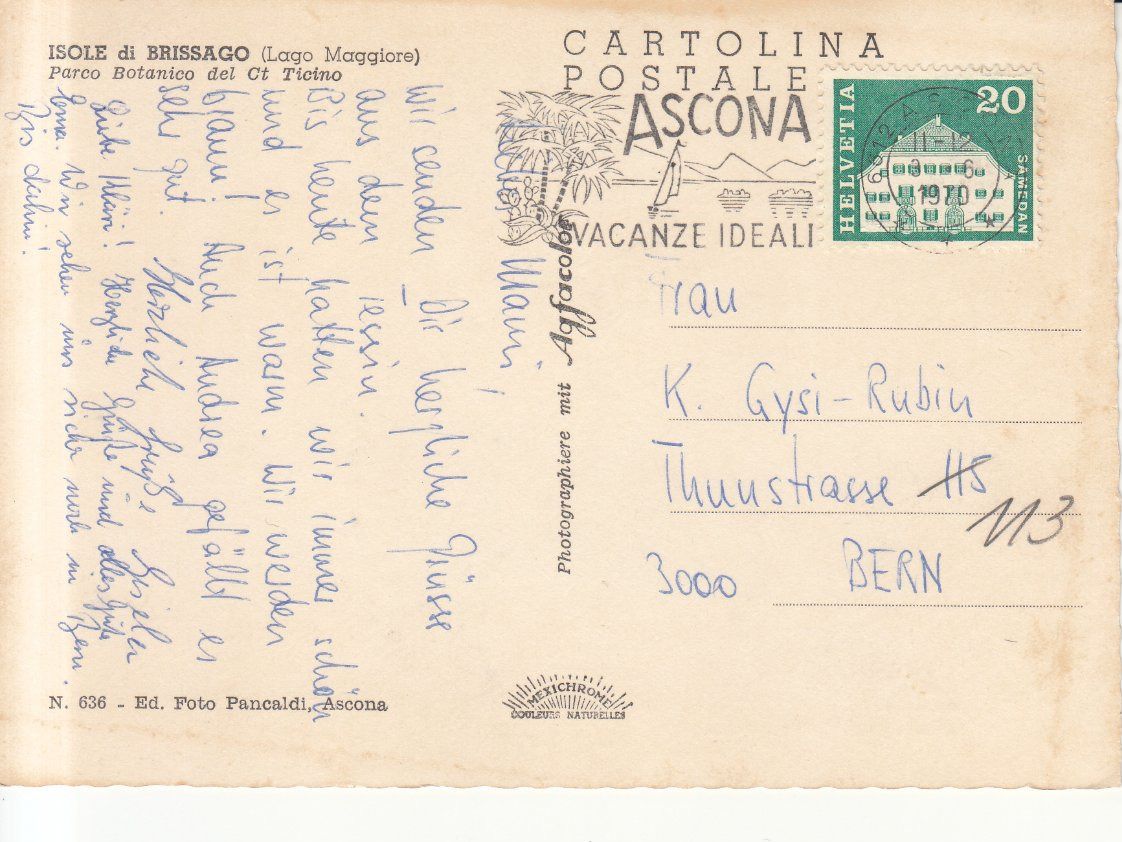 ISOLE di BRISSAGO (Lago Maggiore)
Parco Botanico del Ct Ticino
CARTOLINA
POSTALE
ASCONA
VACANZE IDEALI
HELVETIA
20
SAMEDAN
6612 ASCONA
1970
Mami!
Wir senden Dir herzliche Grüsse
aus dem Tessin.
Bis heute hatten wir immer schön
und es ist warm. Wir werden
braun! Auch Andrea gefällt es
sehr gut. Herzliche Grüsse
Herzliche Grüße und alles Gute
Wir sehen uns sicher noch in Bern.
Bis dahin!
Photographiere mit Agfacolor
Frau
K. Gysi-Rubin
Thunstrasse 115
113
3000 BERN
N. 636 - Ed. Foto Pancaldi, Ascona
MEXICHROME
COULEURS NATURELLES